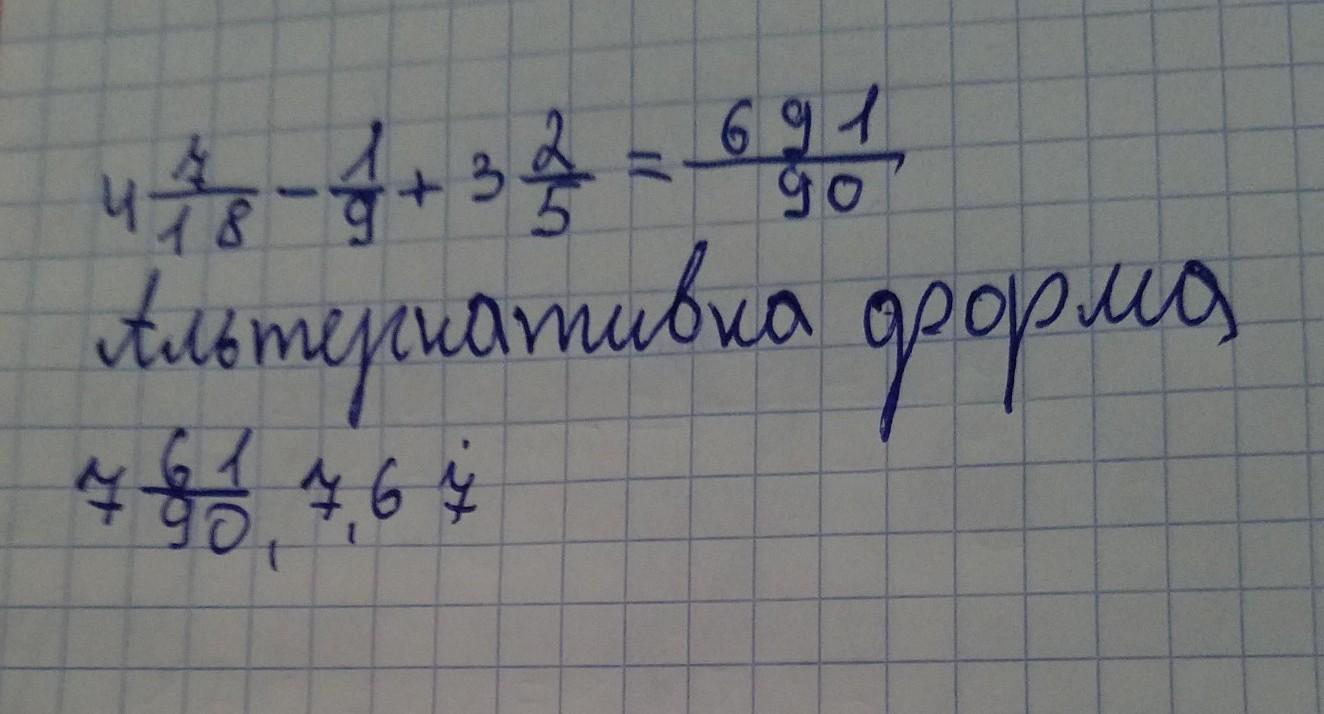 4 7/18 - 1/9 + 3 2/5 = 691/90
Альтернативка форма
7 61/90, 7,6 7̇